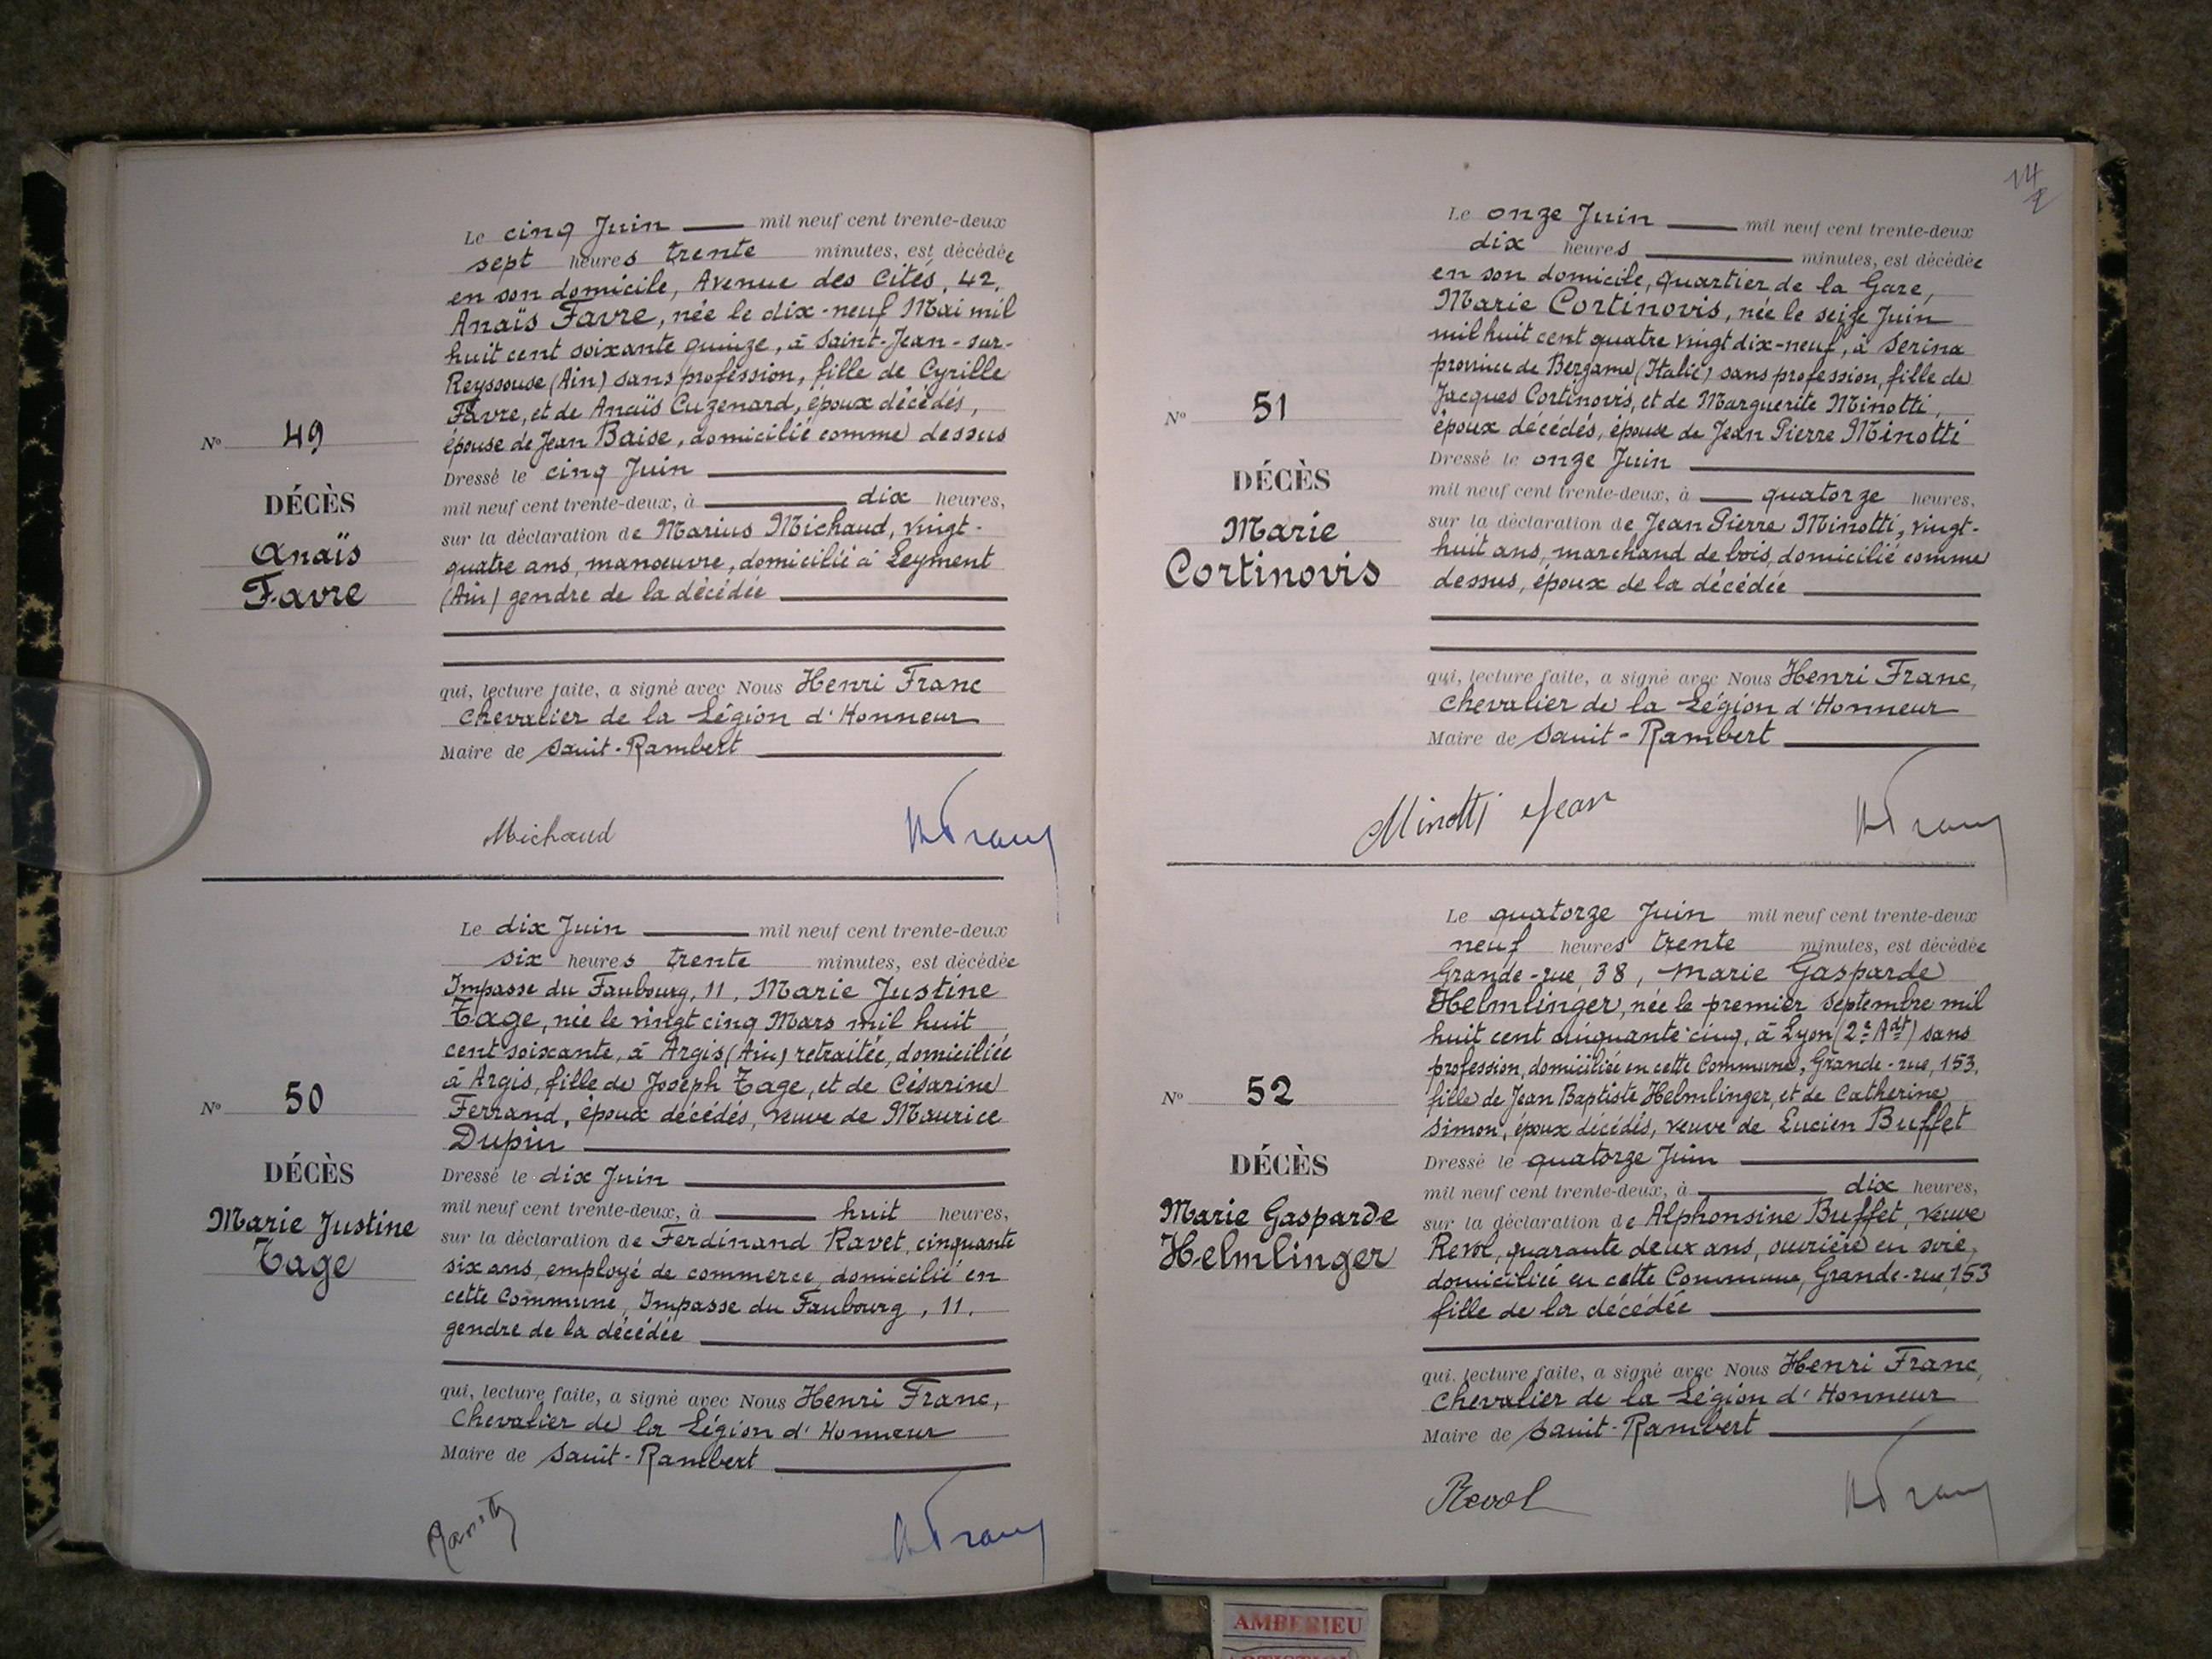 Le cinq Juin mil neuf cent trente-deux
sept heures trente minutes, est décédée
en son domicile, Avenue des Cités, 42,
Anaïs Favre, née le dix-neuf Mai mil
huit cent soixante quinze, à Saint-Jean-sur-
Reyssouse (Ain) sans profession, fille de Cyrille
Favre, et de Anaïs Cuzenard, époux décédés,
épouse de Jean Baise, domicilié comme dessus
Nº 49
DÉCÈS
Anaïs
Favre
Dressé le cinq Juin
mil neuf cent trente-deux, à dix heures,
sur la déclaration de Marius Michaud, vingt-
quatre ans, manœuvre, domicilié à Leyment
(Ain) gendre de la décédée
qui, lecture faite, a signé avec Nous Henri Franc
Chevalier de la Légion d'Honneur
Maire de Saint-Rambert
Michaud
H Franc
Le dix Juin mil neuf cent trente-deux
six heures trente minutes, est décédée
Impasse du Faubourg, 11, Marie Justine
Tage, née le vingt cinq Mars mil huit
cent soixante, à Argis (Ain) retraitée, domiciliée
à Argis, fille de Joseph Tage, et de Césarine
Ferrand, époux décédés, veuve de Maurice
Dupin
Nº 50
DÉCÈS
Marie Justine
Tage
Dressé le dix Juin
mil neuf cent trente-deux, à huit heures,
sur la déclaration de Ferdinand Ravet, cinquante
six ans, employé de commerce, domicilié en
cette Commune, Impasse du Faubourg, 11,
gendre de la décédée
qui, lecture faite, a signé avec Nous Henri Franc,
Chevalier de la Légion d'Honneur
Maire de Saint-Rambert
H Franc
Le onze Juin mil neuf cent trente-deux
dix heures minutes, est décédée
en son domicile, quartier de la Gare,
Marie Cortinovis, née le seize Juin
mil huit cent quatre vingt dix-neuf, à Serina
province de Bergame (Italie) sans profession, fille de
Jacques Cortinovis, et de Marguerite Minotti,
époux décédés, épouse de Jean Pierre Minotti
Nº 51
DÉCÈS
Marie
Cortinovis
Dressé le onze Juin
mil neuf cent trente-deux, à quatorze heures,
sur la déclaration de Jean Pierre Minotti, vingt-
huit ans, marchand de bois, domicilié comme
dessus, époux de la décédée
qui, lecture faite, a signé avec Nous Henri Franc,
Chevalier de la Légion d'Honneur
Maire de Saint-Rambert
Minotti Jean
H Franc
Le quatorze Juin mil neuf cent trente-deux
neuf heures trente minutes, est décédée
Grande-rue, 38, Marie Gasparde
Helmlinger, née le premier Septembre mil
huit cent cinquante-cinq, à Lyon (2e Adt) sans
profession, domiciliée en cette Commune, Grande-rue, 153,
fille de Jean Baptiste Helmlinger, et de Catherine
Simon, époux décédés, veuve de Lucien Buffet
Nº 52
DÉCÈS
Marie Gasparde
Helmlinger
Dressé le quatorze Juin
mil neuf cent trente-deux, à dix heures,
sur la déclaration de Alphonsine Buffet, veuve
Revol, quarante deux ans, ouvrière en soie,
domiciliée en cette Commune, Grande-rue, 153
fille de la décédée
qui, lecture faite, a signé avec Nous Henri Franc,
Chevalier de la Légion d'Honneur
Maire de Saint-Rambert
Revol
H Franc
AMBERIEU